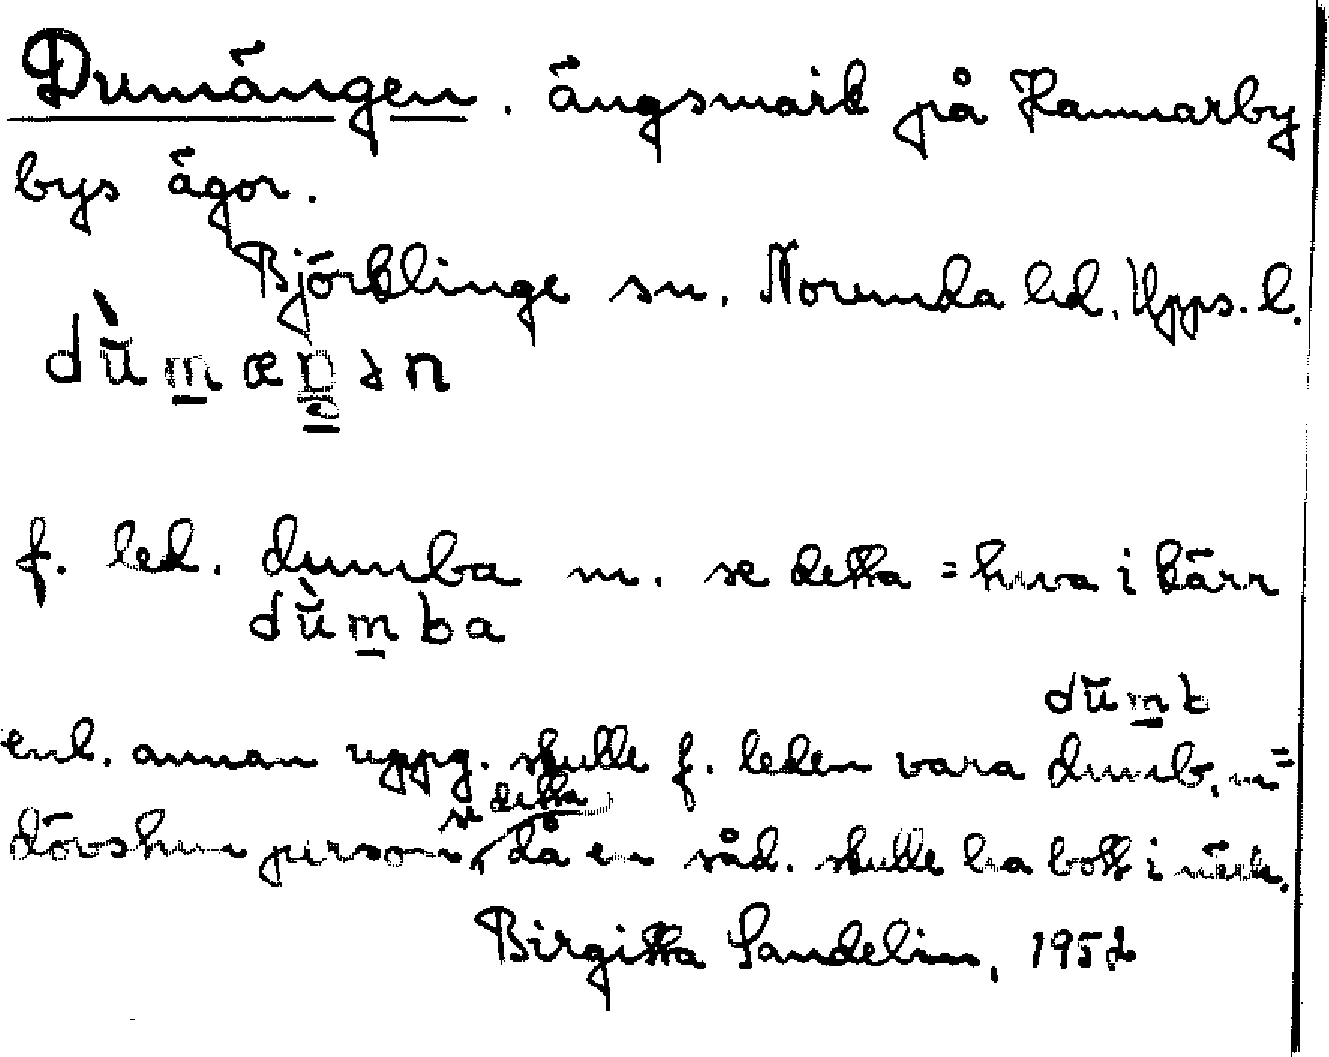 Dumängen. ängsmark på Hammarby
bys ägor.
Björklinge sn. Norunda hd. Upps. l.
dŭ̀mæŋən
f. led. dumba m. se detta = huva i kärr
dŭ̀mba
dŭmb
enl. annan uppg. skulle f. leden vara dumb, m =
se detta
dövstum person, då en såd. skulle ha bott i närh.
Birgitta Sandelin, 1952